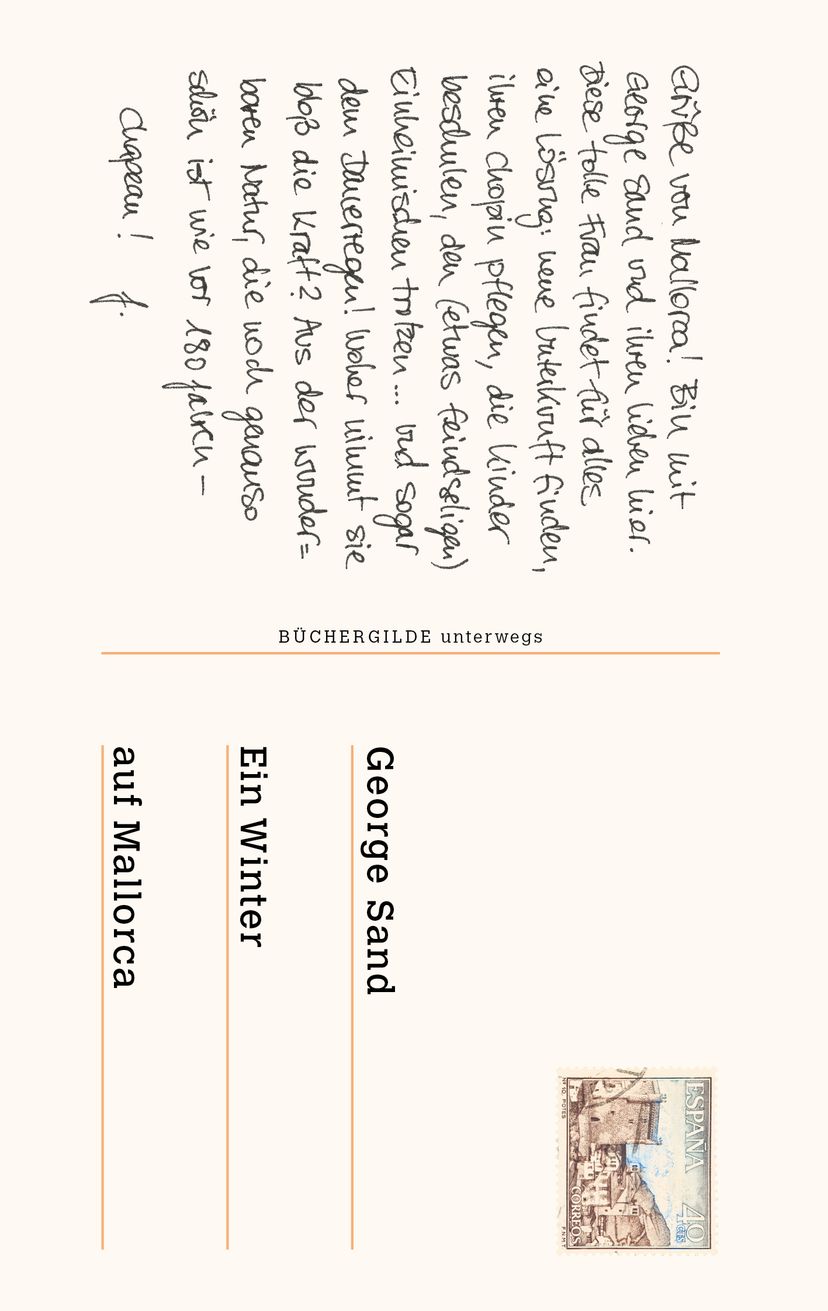 Grüße von Mallorca! Bin mit
George Sand und ihren Lieben hier.
Diese tolle Frau findet für alles
eine Lösung: neue Unterkunft finden,
ihren Chopin pflegen, die Kinder
beschulen, den (etwas feindseligen)
Einheimischen trotzen... und sogar
dem Dauerregen! Woher nimmt sie
bloß die Kraft? Aus der wunder=
baren Natur, die noch genauso
schön ist wie vor 180 Jahren –
Chapeau! J.
BÜCHERGILDE unterwegs
George Sand
Ein Winter
auf Mallorca
ESPAÑA
40
CORREOS
Nº 10 POTES
F.N.M.T.